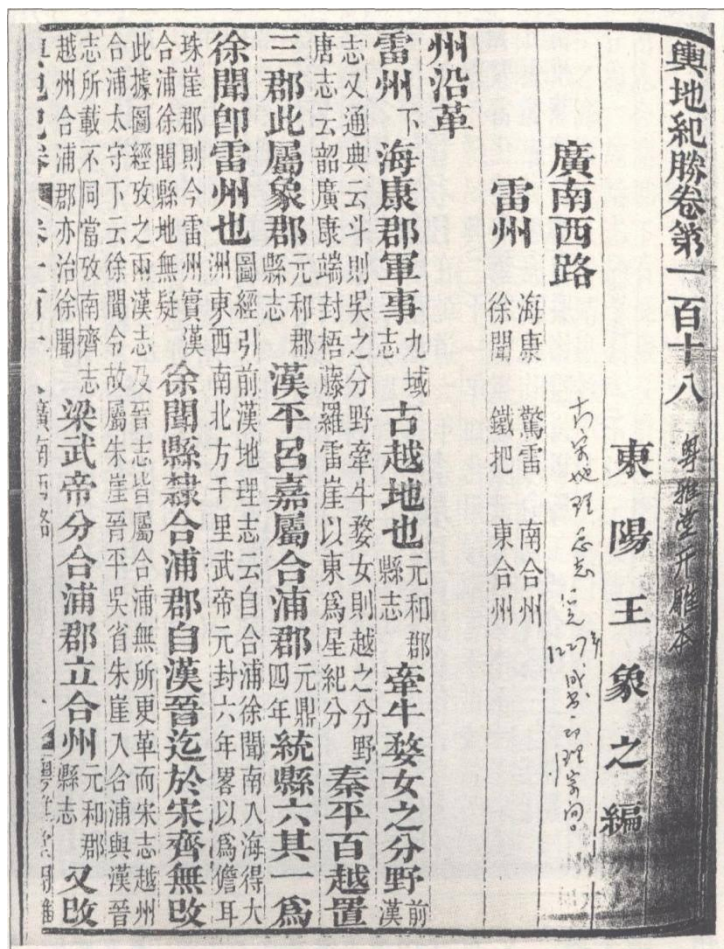 輿地紀勝卷第一百十八
粵雅堂开雕本
東陽王象之編
南宋地理总志
1227年成书
廣南西路
雷州
海康 驚雷 南合州
徐聞 鐵把 東合州
州沿革
雷州下海康郡軍事九域志古越地也元和郡縣志牽牛婺女之分野前漢
志又通典云斗則吳之分野牽牛婺女則越之分野
唐志云韶廣康端封梧藤羅雷崖以東爲星紀分秦平百越置
三郡此屬象郡元和郡縣志漢平呂嘉屬合浦郡元鼎四年統縣六其一爲
徐聞卽雷州也圖經引前漢地理志云自合浦徐聞南入海得大
洲東西南北方千里武帝元封六年畧以爲儋耳
珠崖郡則今雷州實漢
合浦徐聞縣地無疑徐聞縣隸合浦郡自漢晉迄於宋齊無改
此據圖經攷之兩漢志及晉志皆屬合浦無所更革而宋志越州
合浦太守下云徐聞令故屬朱崖晉平吳省朱崖入合浦與漢晉
志所載不同當攷南齊志
越州合浦郡亦治徐聞梁武帝分合浦郡立合州元和郡縣志又改
卷一百十八 廣南西路